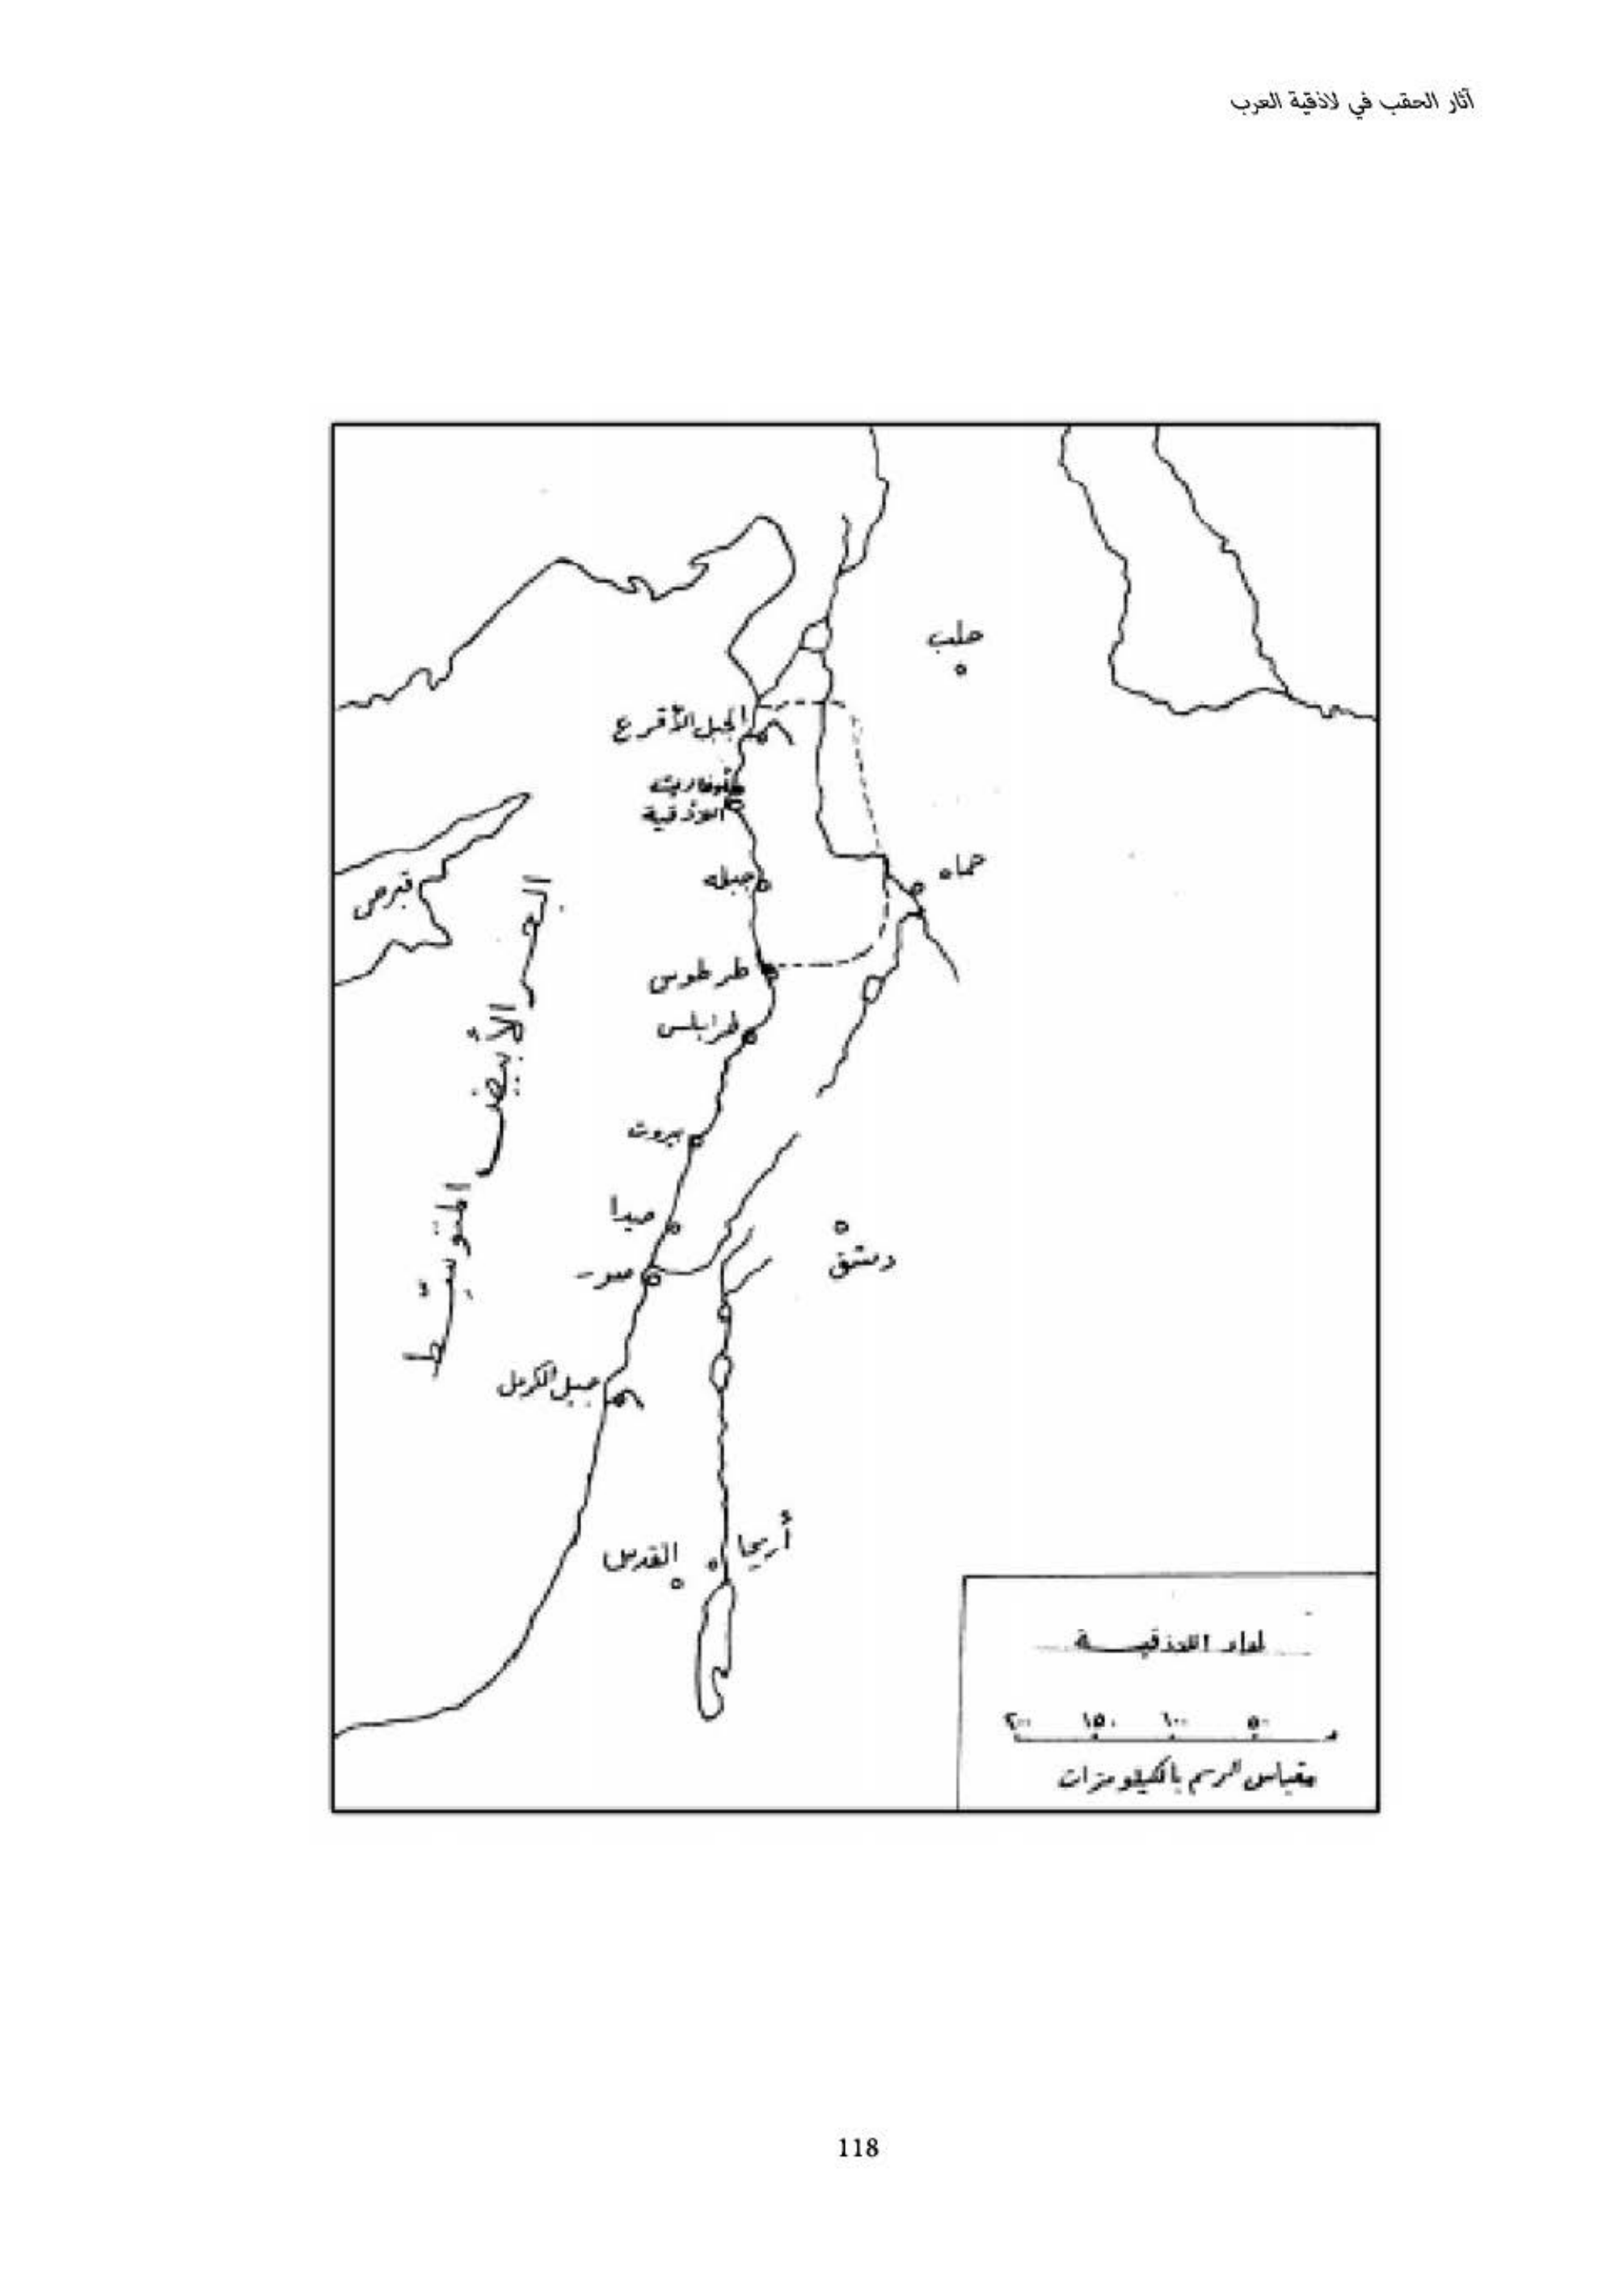 آثار الحقب في لاذقية العرب
حلب
الجبل الأقرع
أوغاريت
اللاذقية
قبرص
جبله
حماه
البحر الأبيض المتوسّط
طرطوس
طرابلس
بيروت
صيدا
دمشق
صور
جبل الكرمل
أريحا
القدس
لواء اللاذقيـــة
٢٠٠ ١٥٠ ١٠٠ ٥٠ ٠
مقياس الرسم بالكيلومترات
118